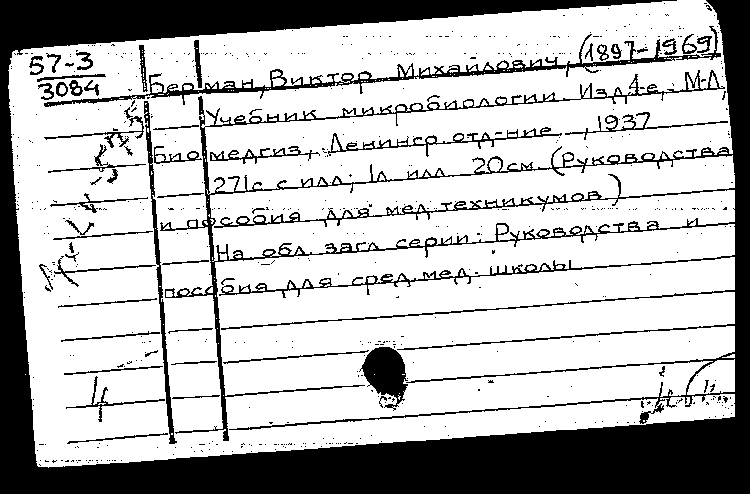 57-3
3084
Берман, Виктор Михайлович, (1897-1969)
Учебник микробиологии. Изд 4-е, М-Л,
Биомедгиз, Ленингр. отд-ние, 1937
271с с илл; 1л илл 20см (Руководства
и пособия для мед техникумов)
На обл загл серии: Руководства и
пособия для сред. мед. школы
4